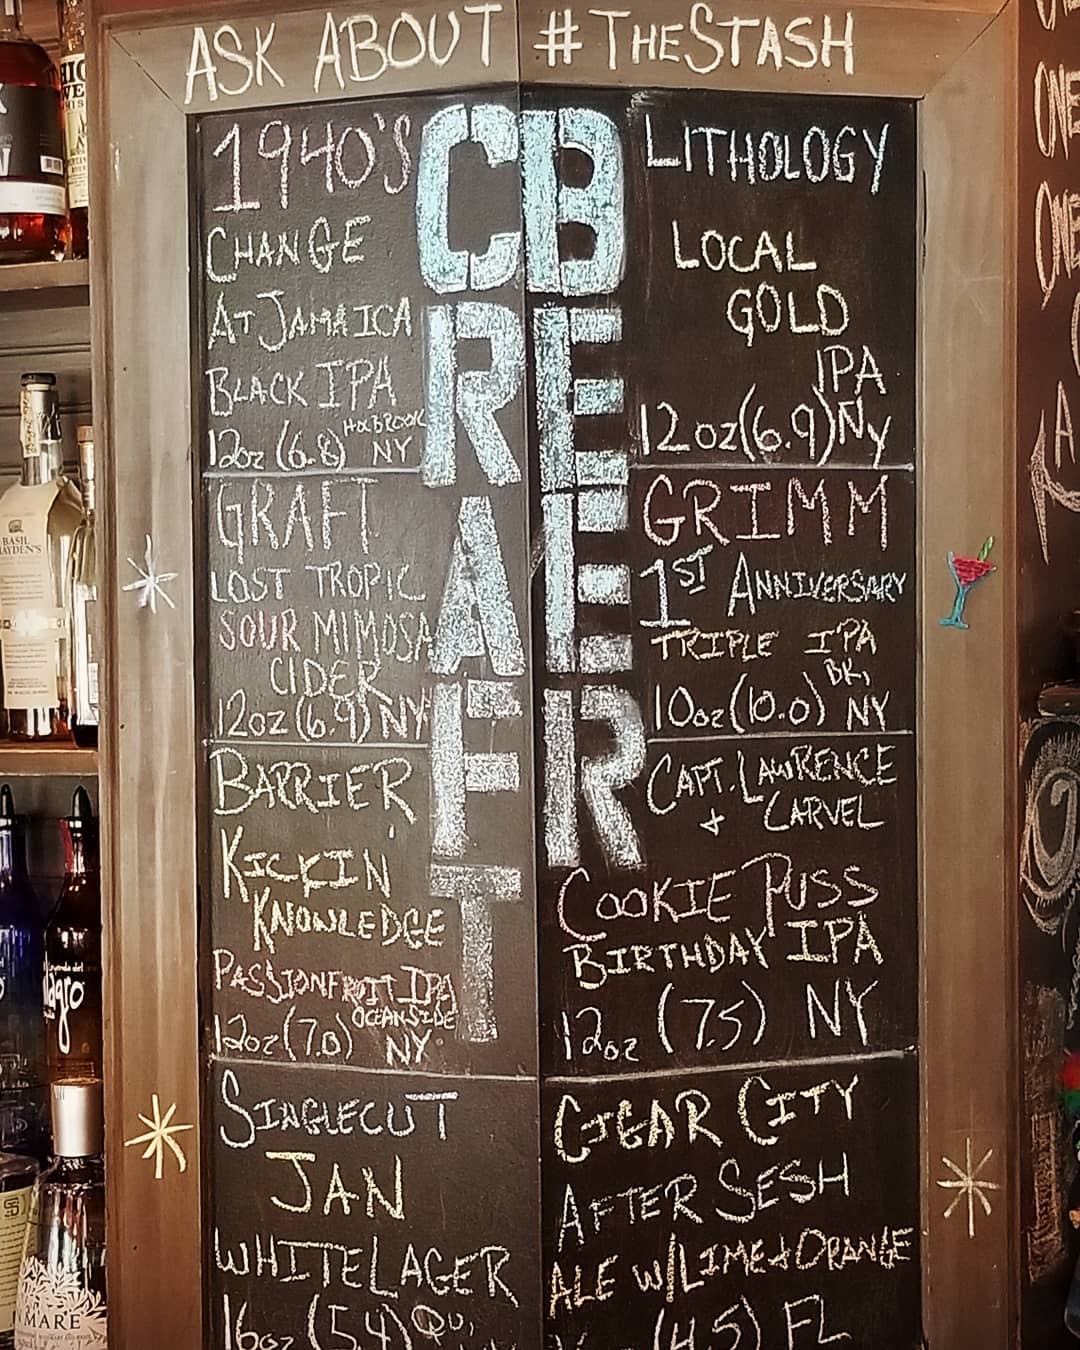 ASK ABOUT #THESTASH
CRAFT
BEER
1940'S
CHANGE
AT JAMAICA
BLACK IPA
HOLBROOK
12oz (6.8) NY
GRAFT
LOST TROPIC
SOUR MIMOSA
CIDER
12oz (6.9) NY
BARRIER
KICKIN'
KNOWLEDGE
PASSIONFRUIT IPA
OCEANSIDE
12oz (7.0) NY
SINGLECUT
JAN
WHITE LAGER
16oz (5.4) QU,
LITHOLOGY
LOCAL
GOLD
IPA
12oz (6.9) NY
GRIMM
1ST ANNIVERSARY
TRIPLE IPA
BK,
10oz (10.0) NY
CAPT. LAWRENCE
+ CARVEL
COOKIE PUSS
BIRTHDAY IPA
12oz (7.5) NY
CIGAR CITY
AFTER SESH
ALE W/LIME + ORANGE
(4.5) FL
BASIL
HAYDEN'S
MARE